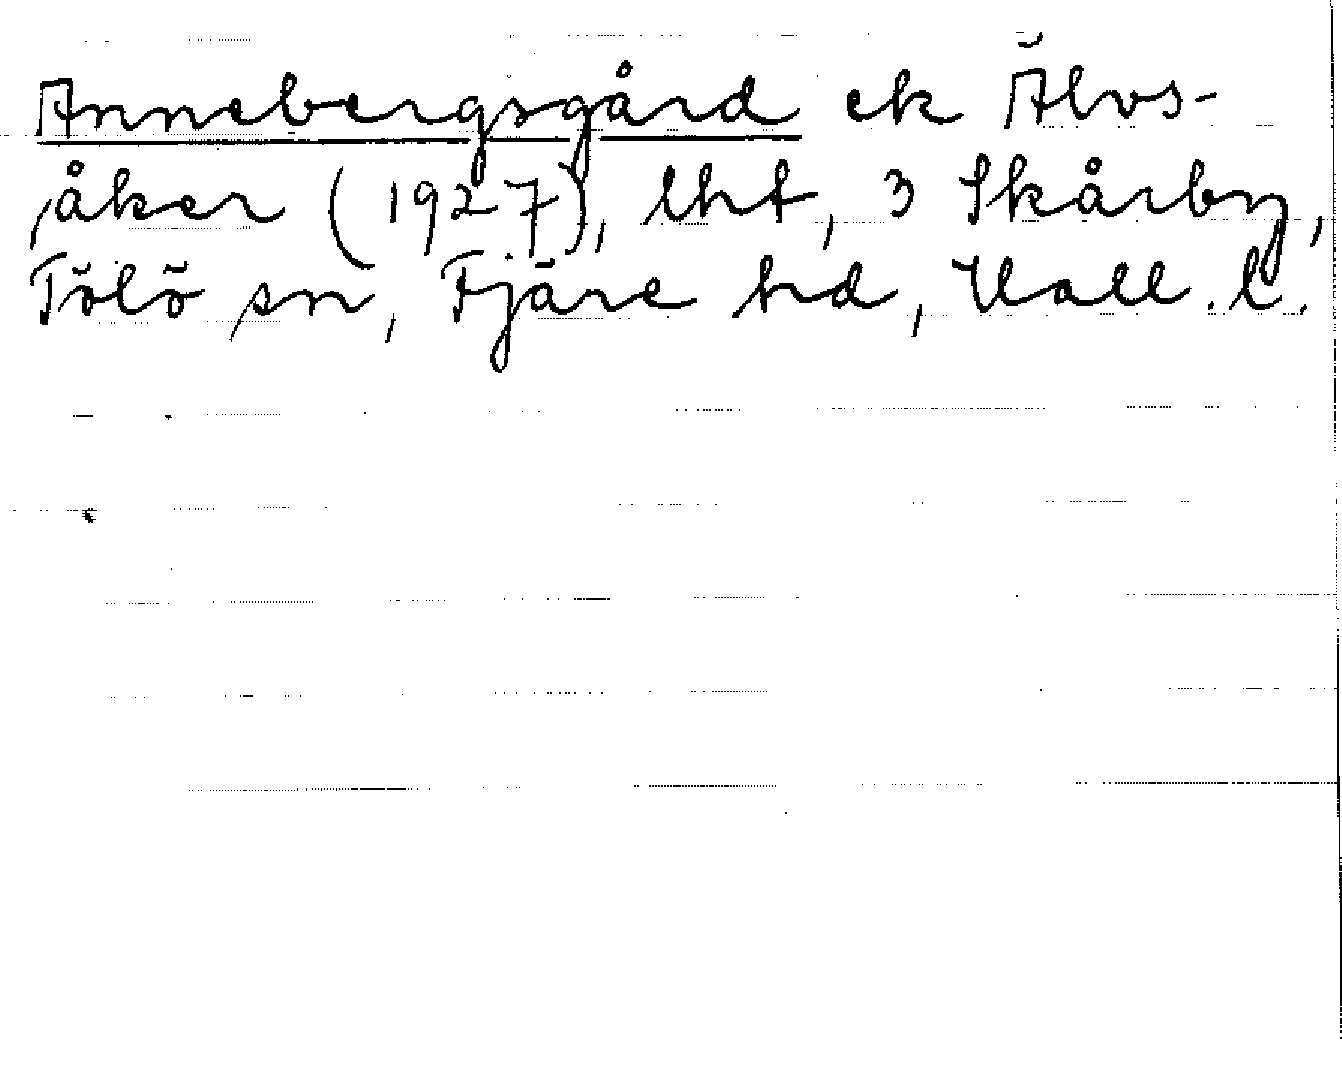 Annebergsgård ek Älvs-
åker (1927), lht, 3 Skårby,
Tölö sn, Fjäre hd, Hall. l.